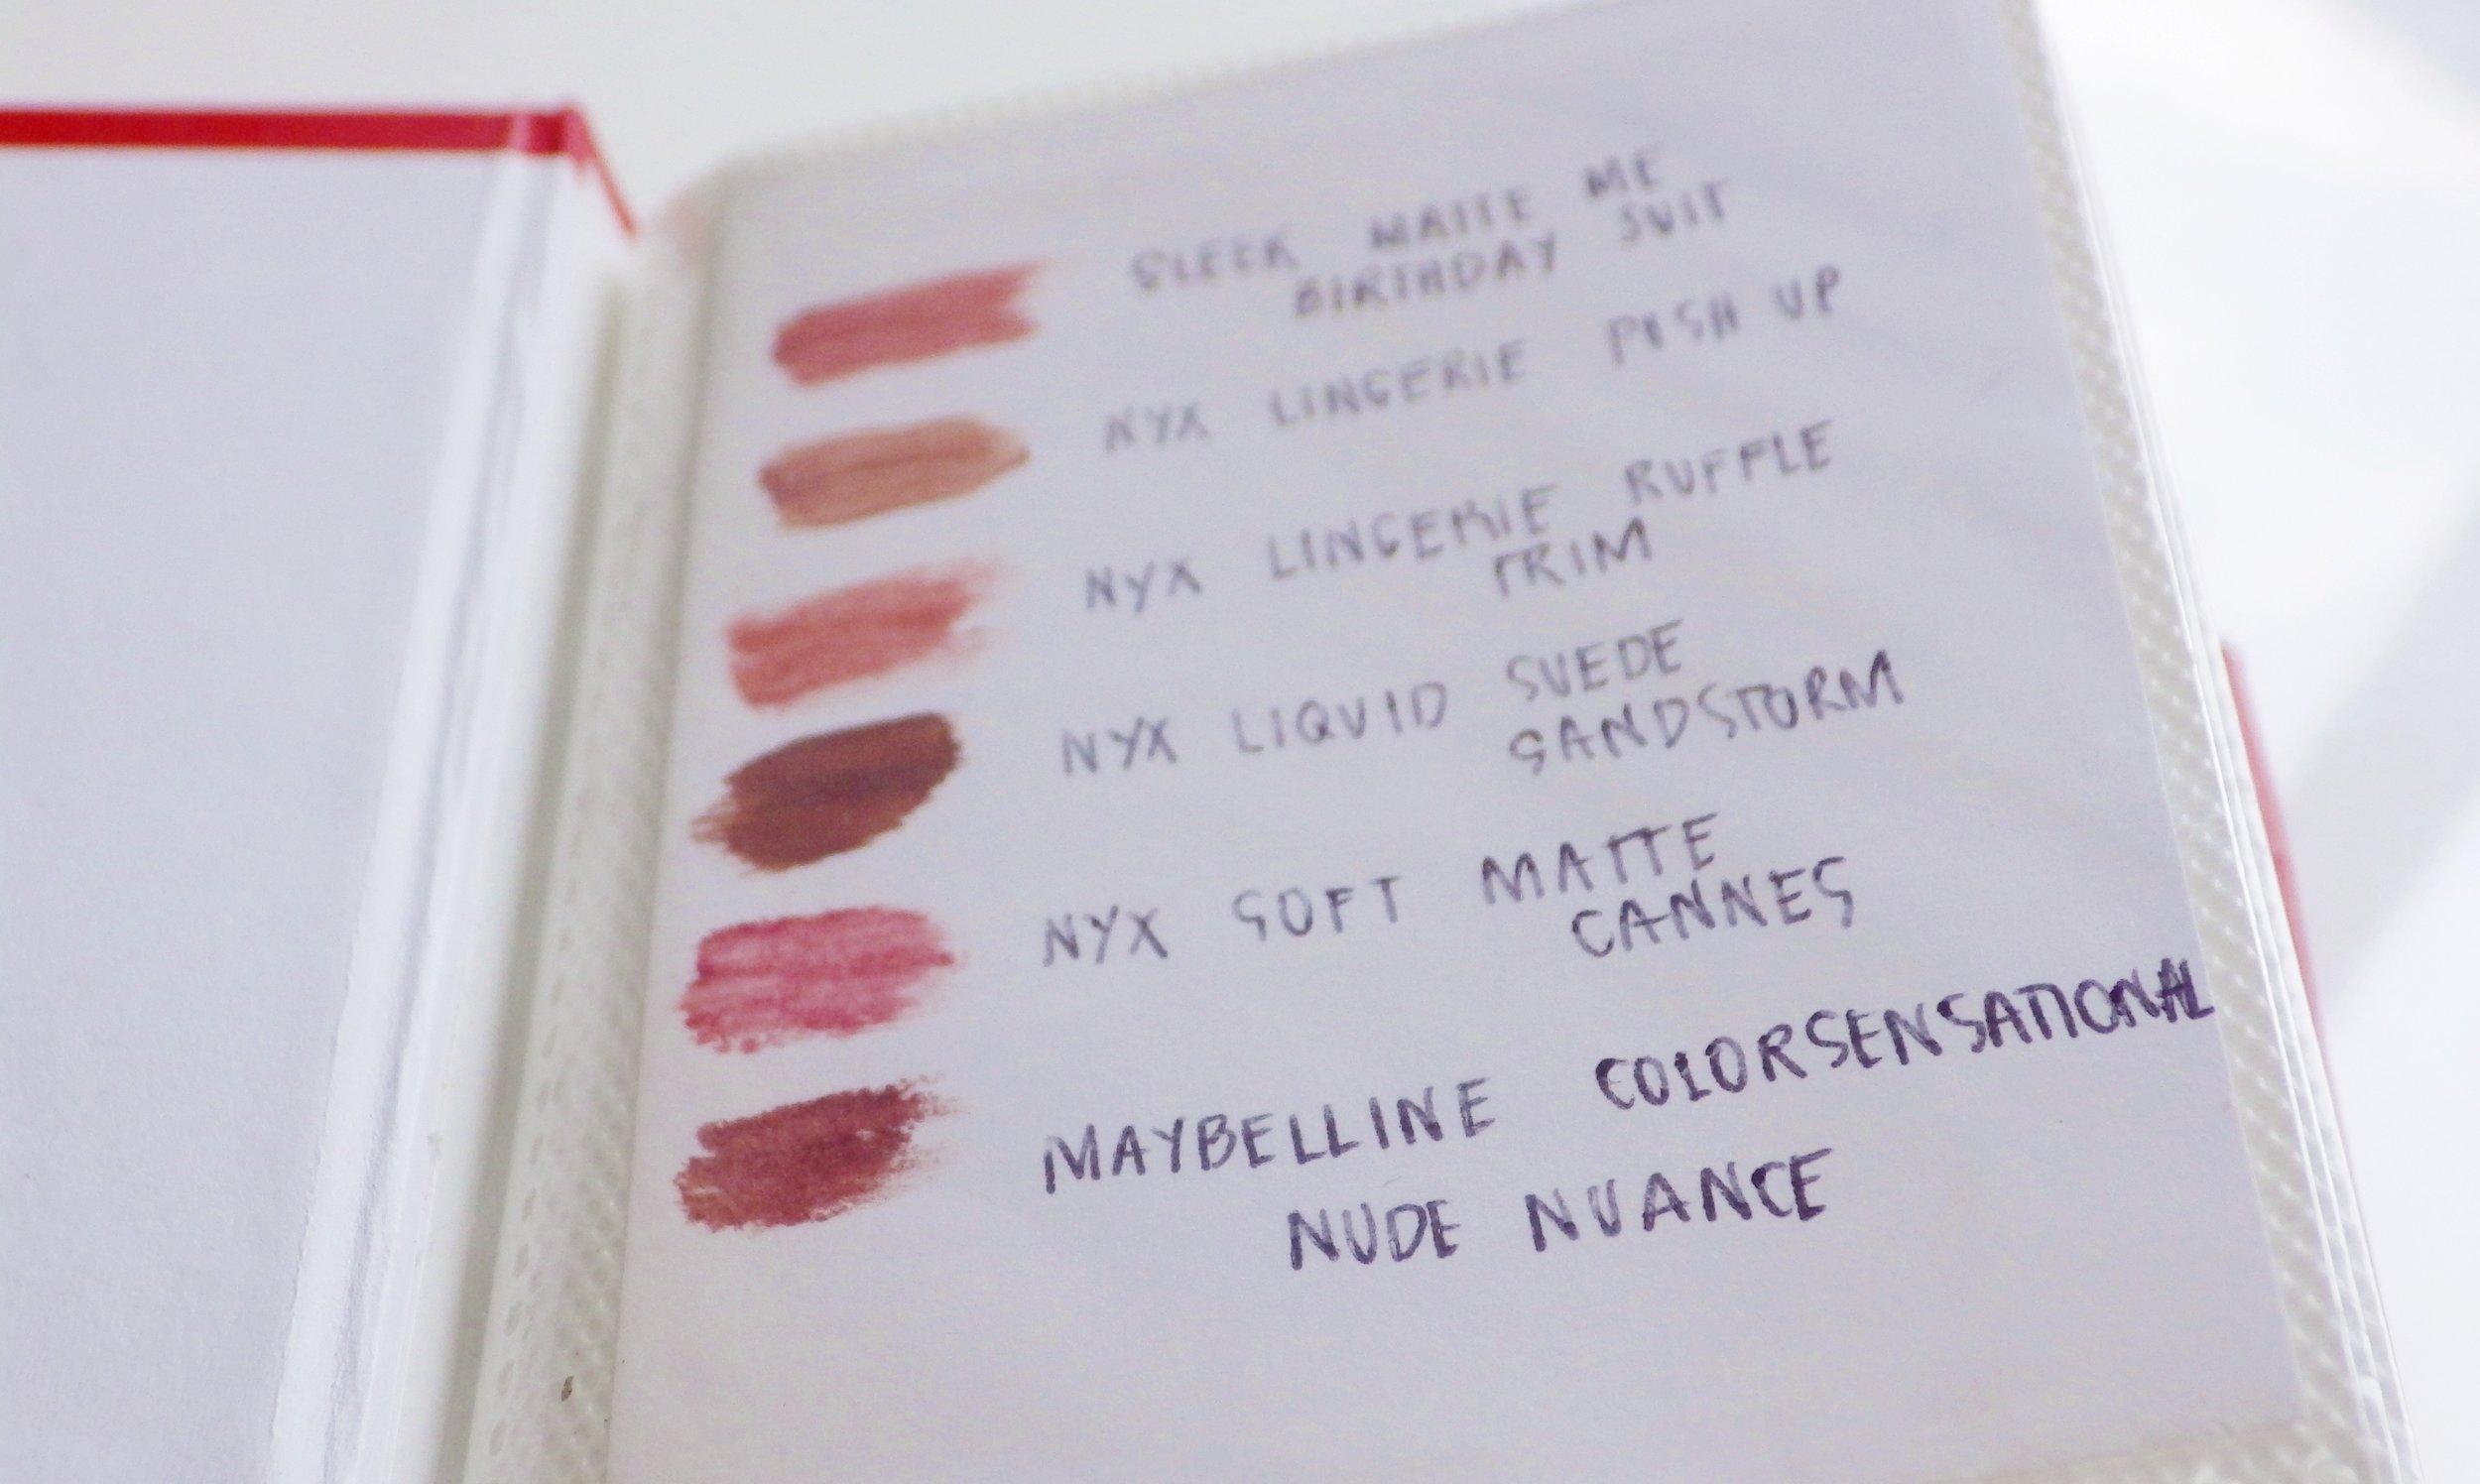 SLEEK MATTE ME
BIRTHDAY SUIT
NYX LINGERIE PUSH UP
NYX LINGERIE RUFFLE
TRIM
NYX LIQUID SUEDE
SANDSTORM
NYX SOFT MATTE
CANNES
MAYBELLINE COLORSENSATIONAL
NUDE NUANCE